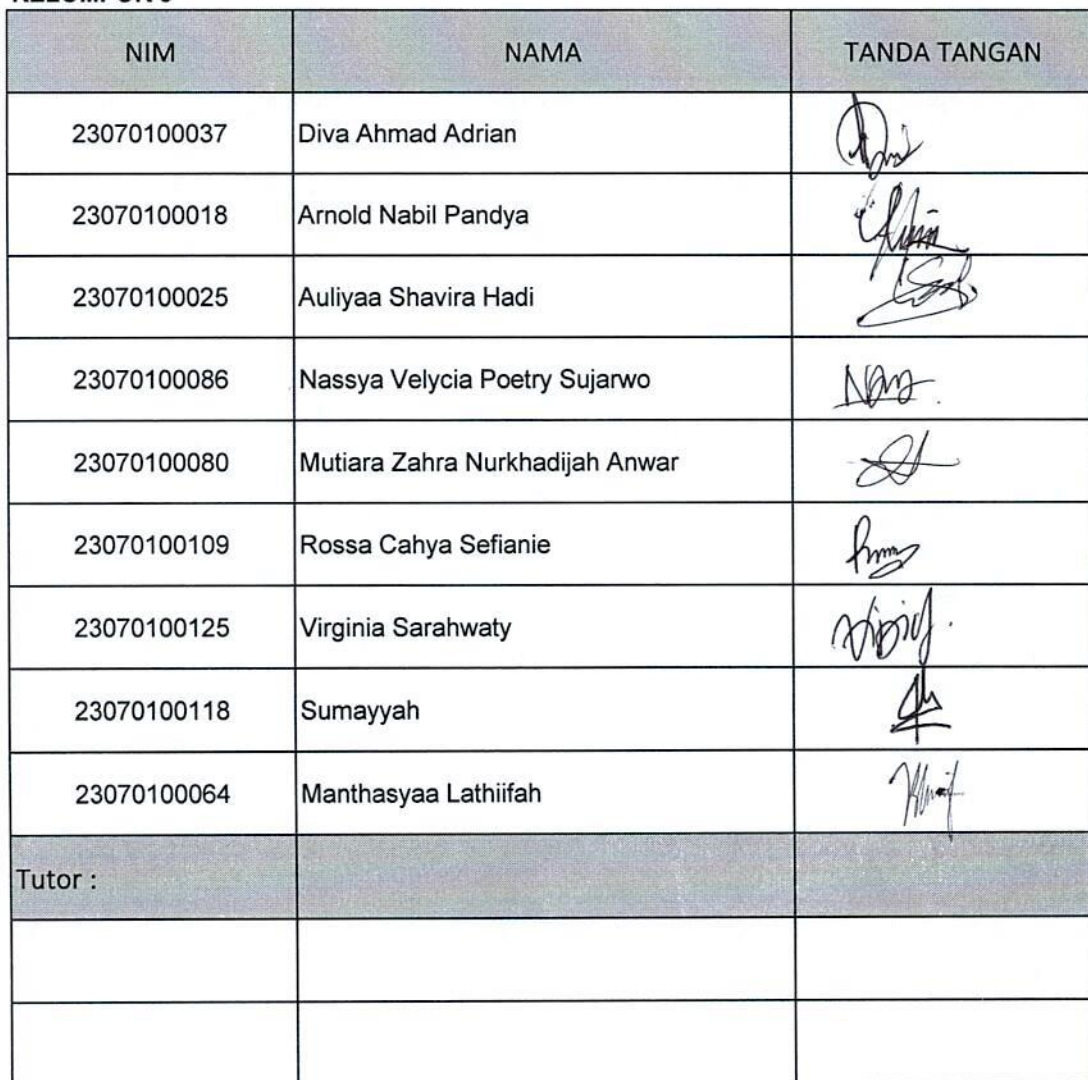 NIM NAMA TANDA TANGAN
23070100037 Diva Ahmad Adrian
23070100018 Arnold Nabil Pandya
23070100025 Auliyaa Shavira Hadi
23070100086 Nassya Velycia Poetry Sujarwo
23070100080 Mutiara Zahra Nurkhadijah Anwar
23070100109 Rossa Cahya Sefianie
23070100125 Virginia Sarahwaty
23070100118 Sumayyah
23070100064 Manthasyaa Lathiifah
Tutor :